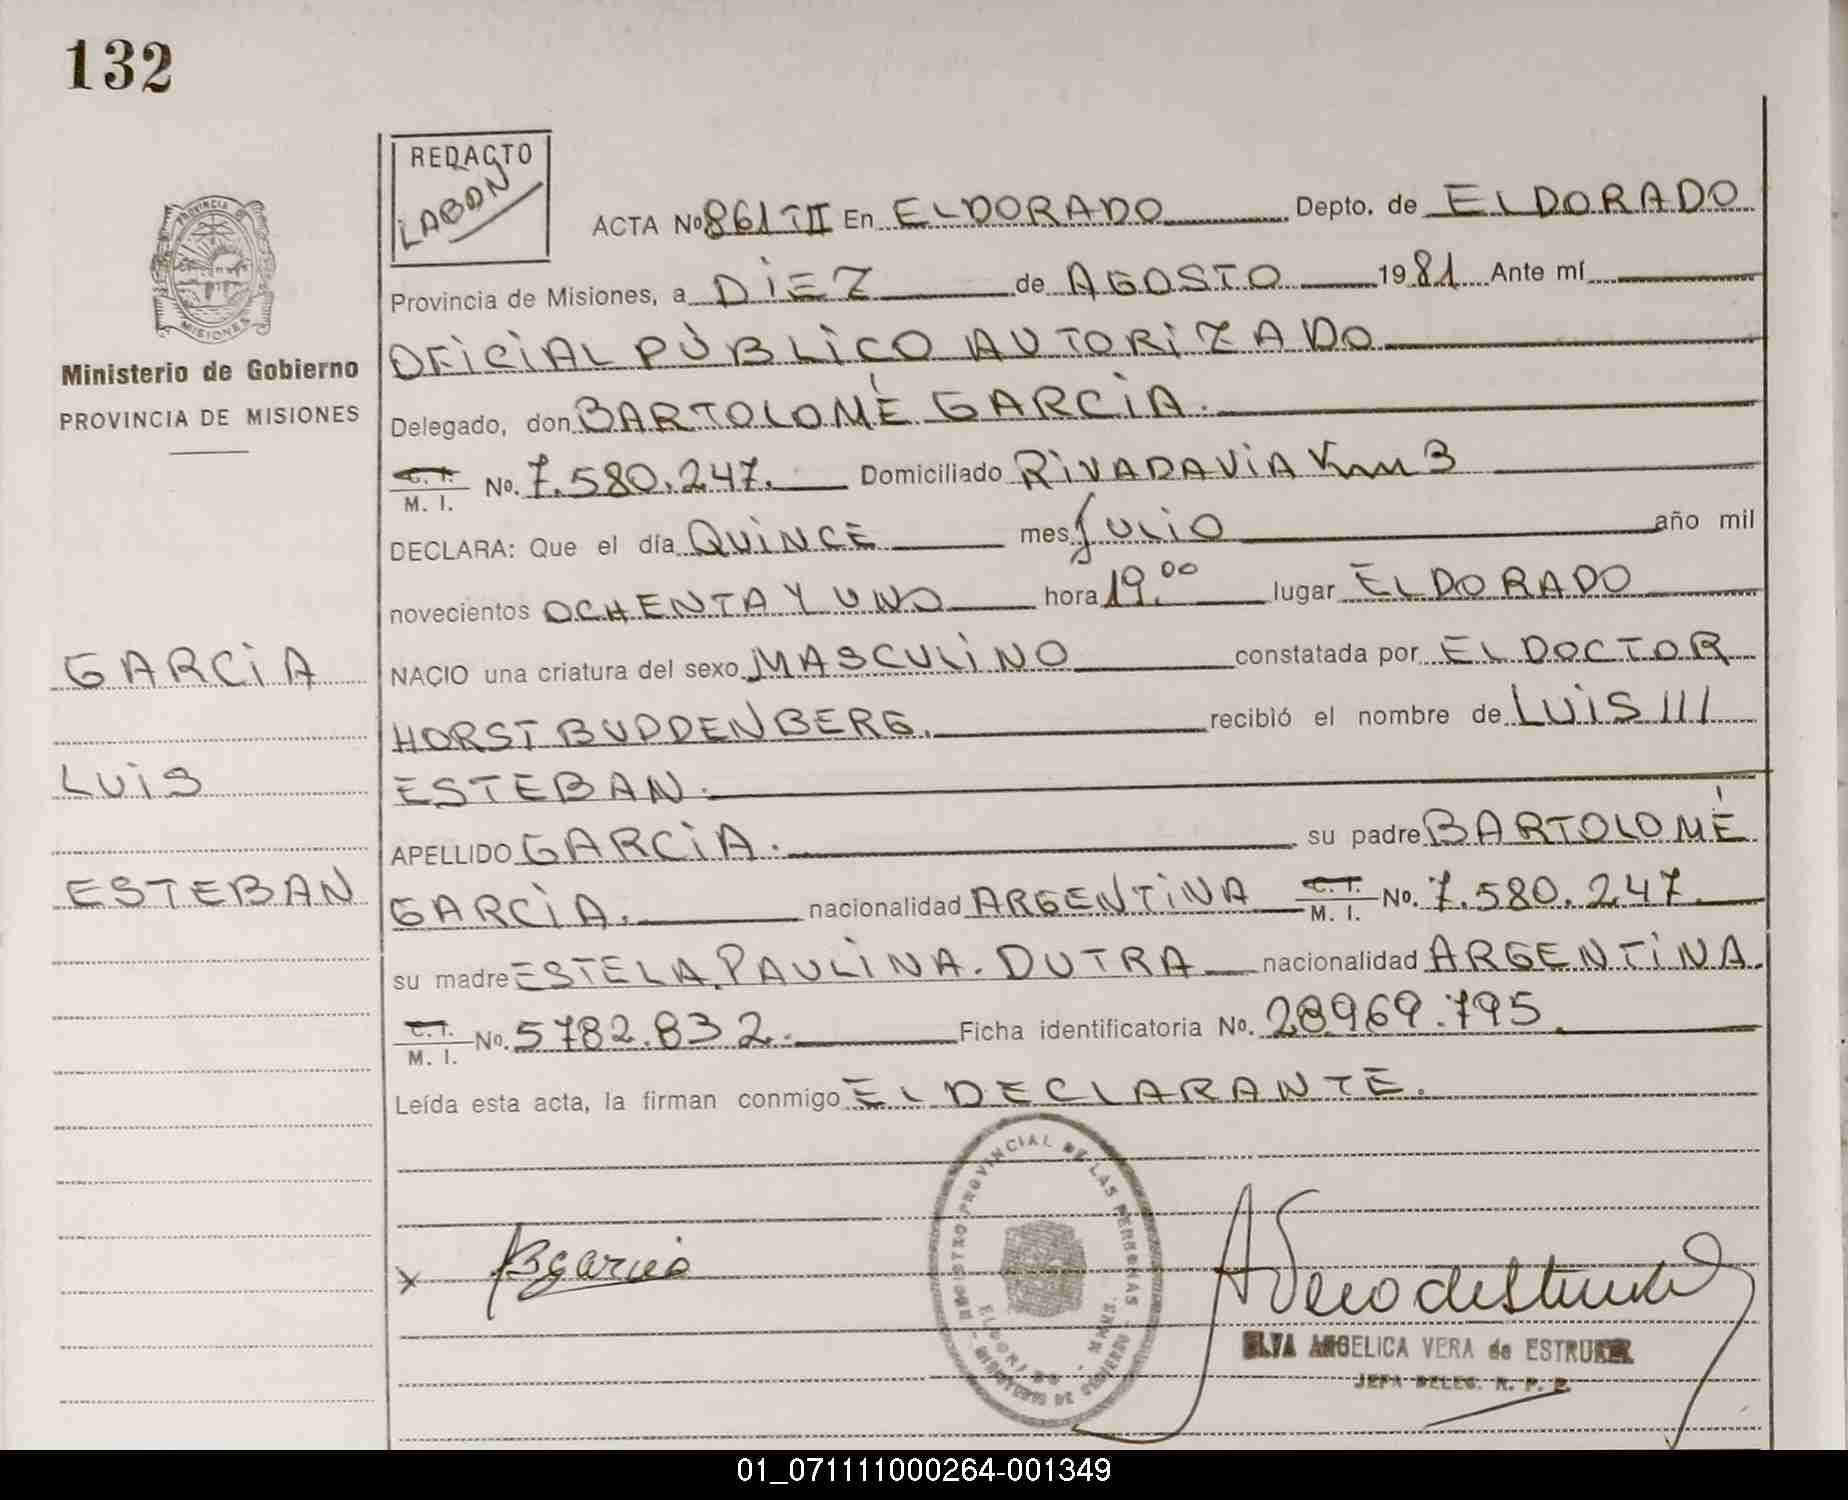 132
REDACTO
LABON
PROVINCIA DE
MISIONES
ACTA Nº 861 TII En ELDORADO Depto. de ELDORADO
Provincia de Misiones, a DIEZ de AGOSTO 1981 Ante mí
OFICIAL PÚBLICO AUTORIZADO
Ministerio de Gobierno
PROVINCIA DE MISIONES
Delegado, don BARTOLOMÉ GARCIA.
C. I.
M. I. No. 7.580.247. Domiciliado RIVADAVIA Km 3
DECLARA: Que el día QUINCE mes JULIO año mil
novecientos OCHENTA Y UNO hora 19.00 lugar ELDORADO
GARCIA
NACIO una criatura del sexo MASCULINO constatada por EL DOCTOR
HORST BUDDENBERG. recibió el nombre de LUIS ///
LUIS
ESTEBAN.
APELLIDO GARCIA. su padre BARTOLOMÉ
ESTEBAN
GARCIA. nacionalidad ARGENTINA C. I. M. I. No. 7.580.247
su madre ESTELA PAULINA. DUTRA nacionalidad ARGENTINA.
C. I.
M. I. No. 5782.832. Ficha identificatoria No. 28969.795.
Leída esta acta, la firman conmigo EL DECLARANTE.
REGISTRO PROVINCIAL DE LAS PERSONAS
ELDORADO - MNES.
MINISTERIO DE GOBIERNO
x BGarcia
AVera de Estruker
ELVA ANGELICA VERA de
JEFA DELEG. R. P. P.
01_071111000264-001349